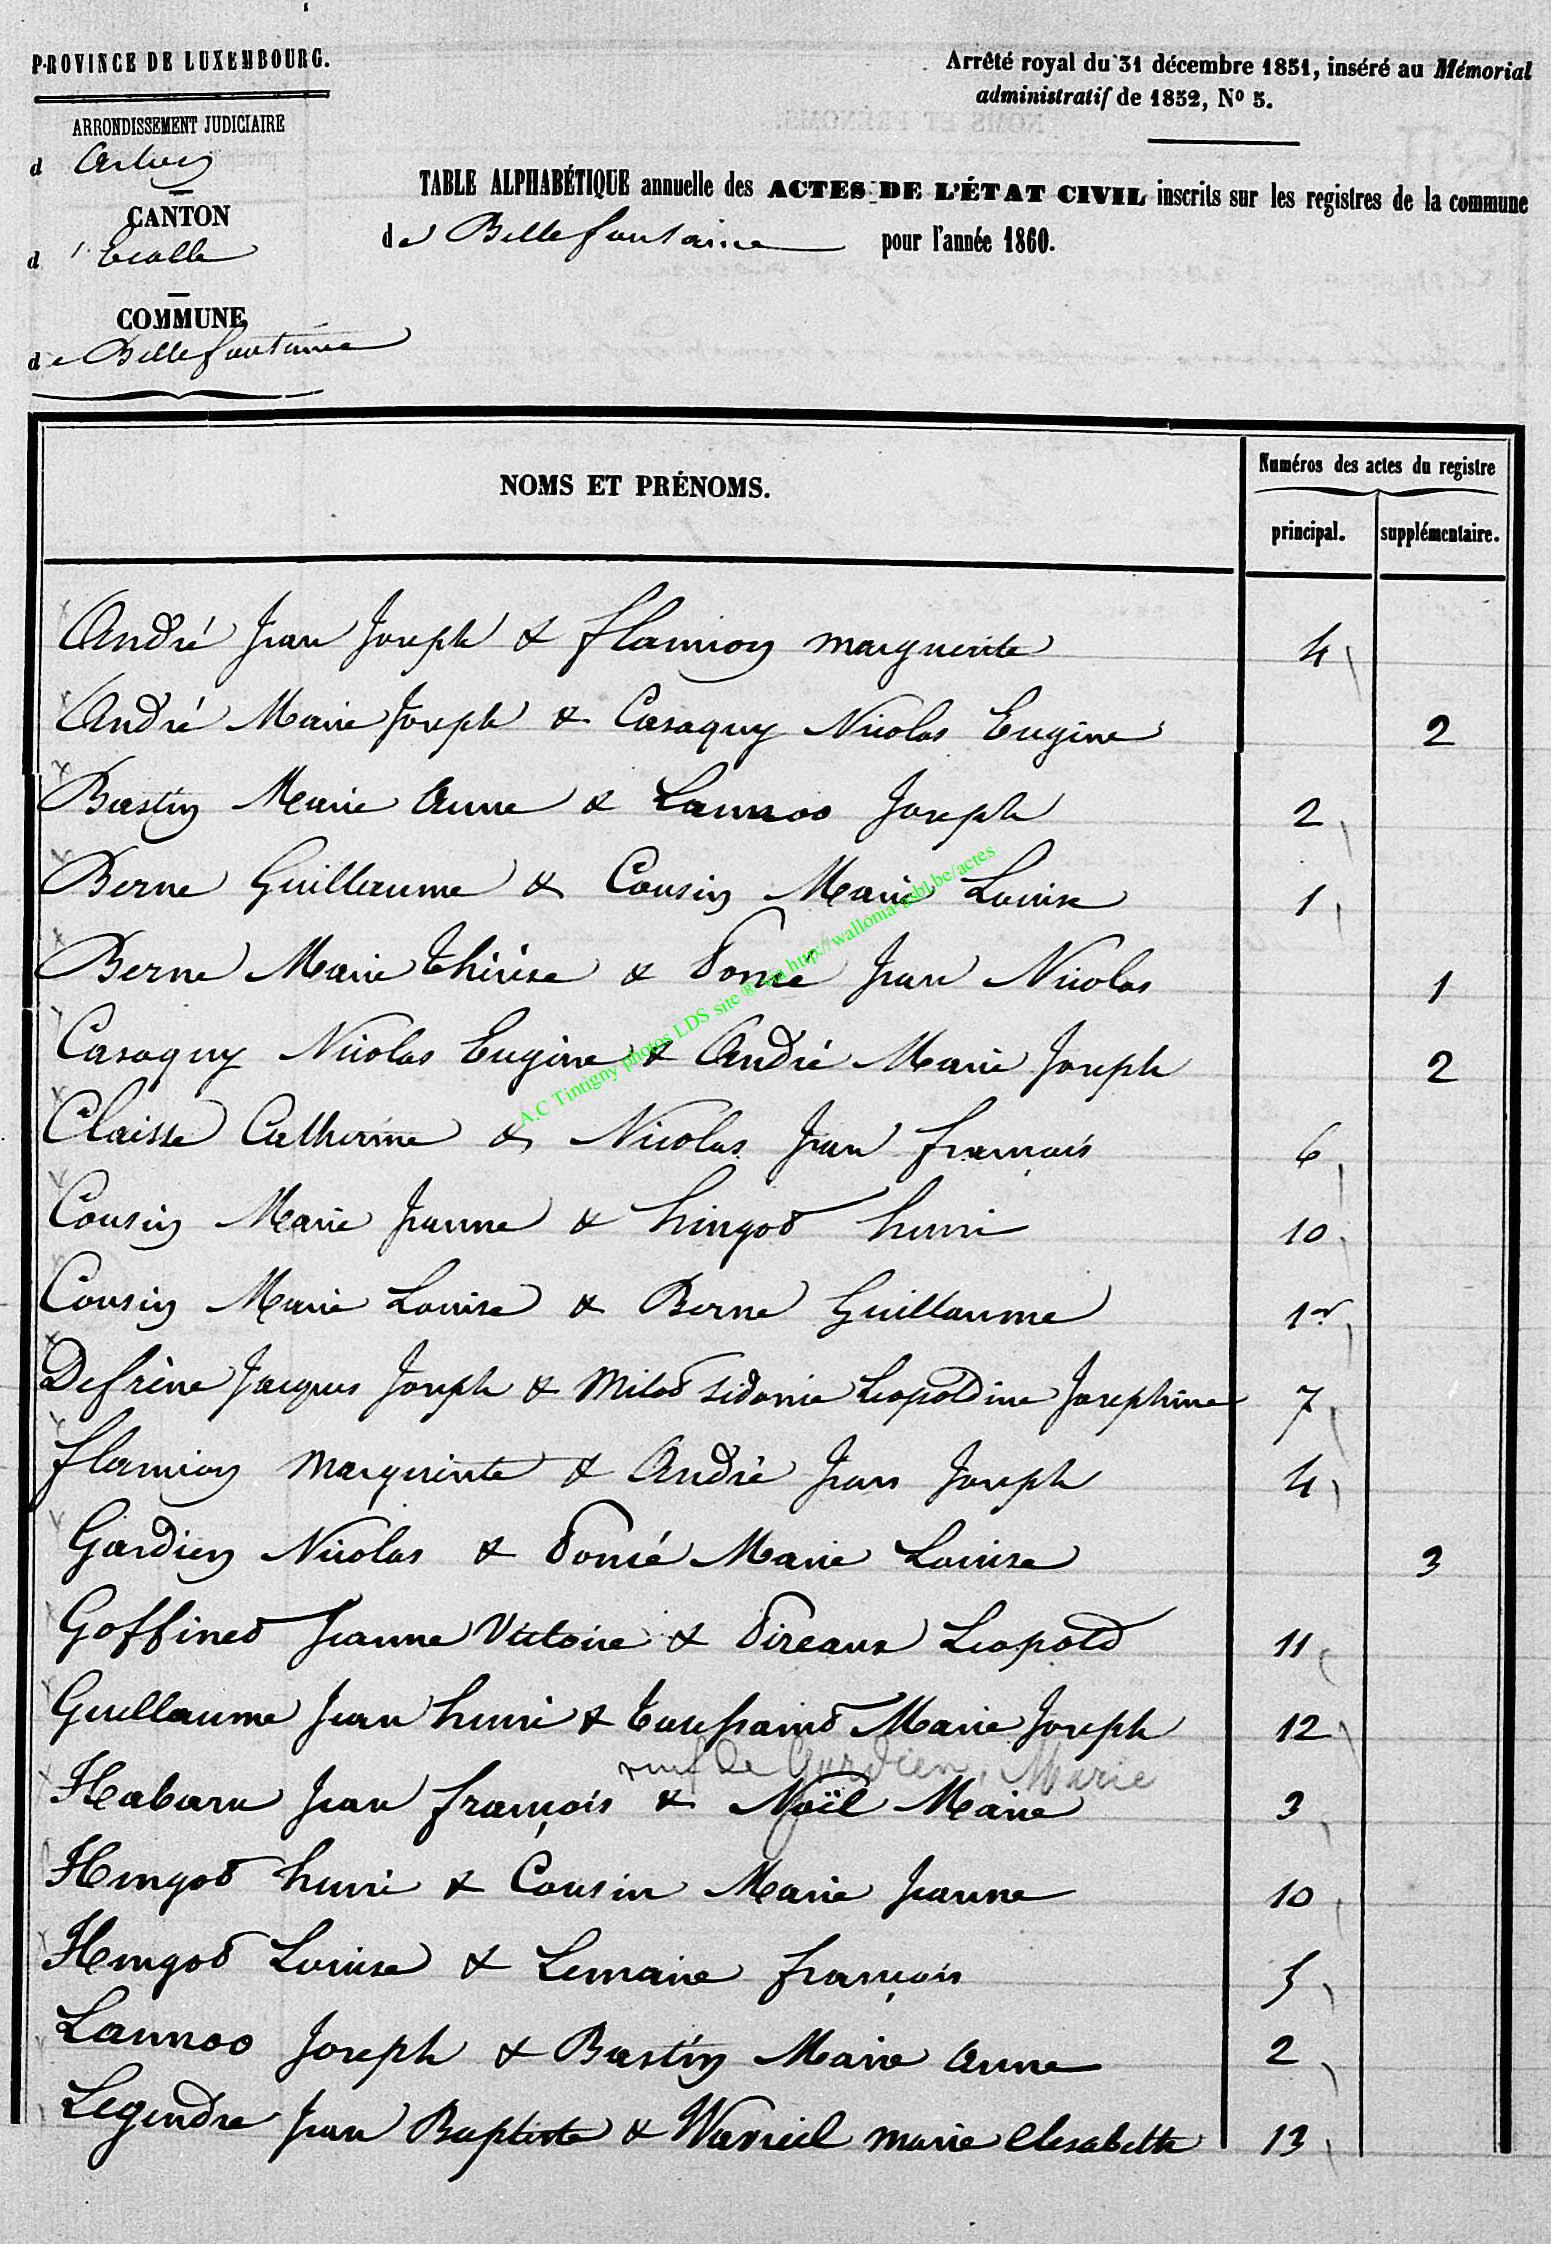 PROVINCE DE LUXEMBOURG.
Arrêté royal du 31 décembre 1851, inséré au Mémorial
administratif de 1852, Nº 5.
ARRONDISSEMENT JUDICIAIRE
d Arlon
CANTON
d'Etalle
COMMUNE
de Bellefontaine
TABLE ALPHABÉTIQUE annuelle des ACTES DE L'ÉTAT CIVIL inscrits sur les registres de la commune
de Bellefontaine pour l'année 1860.
NOMS ET PRÉNOMS.
Numéros des actes du registre
principal. supplémentaire.
André Jean Joseph & flamion marguerite 4
André Marie Joseph & Casaquy Nicolas Eugène 2
Bastin Marie Anne & Lannoo Joseph 2
Berne Guillaume & Cousin Marie Louise 1
Berne Marie thérèse & Poncé Jean Nicolas 1
Casaquy Nicolas Eugène & André Marie Joseph 2
Claisse Catherine & Nicolas Jean françois 6
Cousin Marie Jeanne & hingot henri 10
Cousin Marie Louise & Berne Guillaume 1er
Defrène Jacques Joseph & Milot Sidonie Leopoldine Josephine 7
flamion marguerite & André Jean Joseph 4
Gardien Nicolas & Poncé Marie Louise 3
Goffinet Jeanne Victoire & Pireaux Leopold 11
Guillaume Jean henri & toussaint Marie Joseph 12
veuf de Gardien, Marie
Habaru Jean françois & Noël Marie 3
Hingot henri & Cousin Marie Jeanne 10
Hingot Louise & Lemaire françois 5
Lannoo Joseph & Bastin Marie Anne 2
Legendre Jean Baptiste & marie elisabeth 13
A.C Tintigny photos LDS site ® via http://wallonia-asbl.be/actes